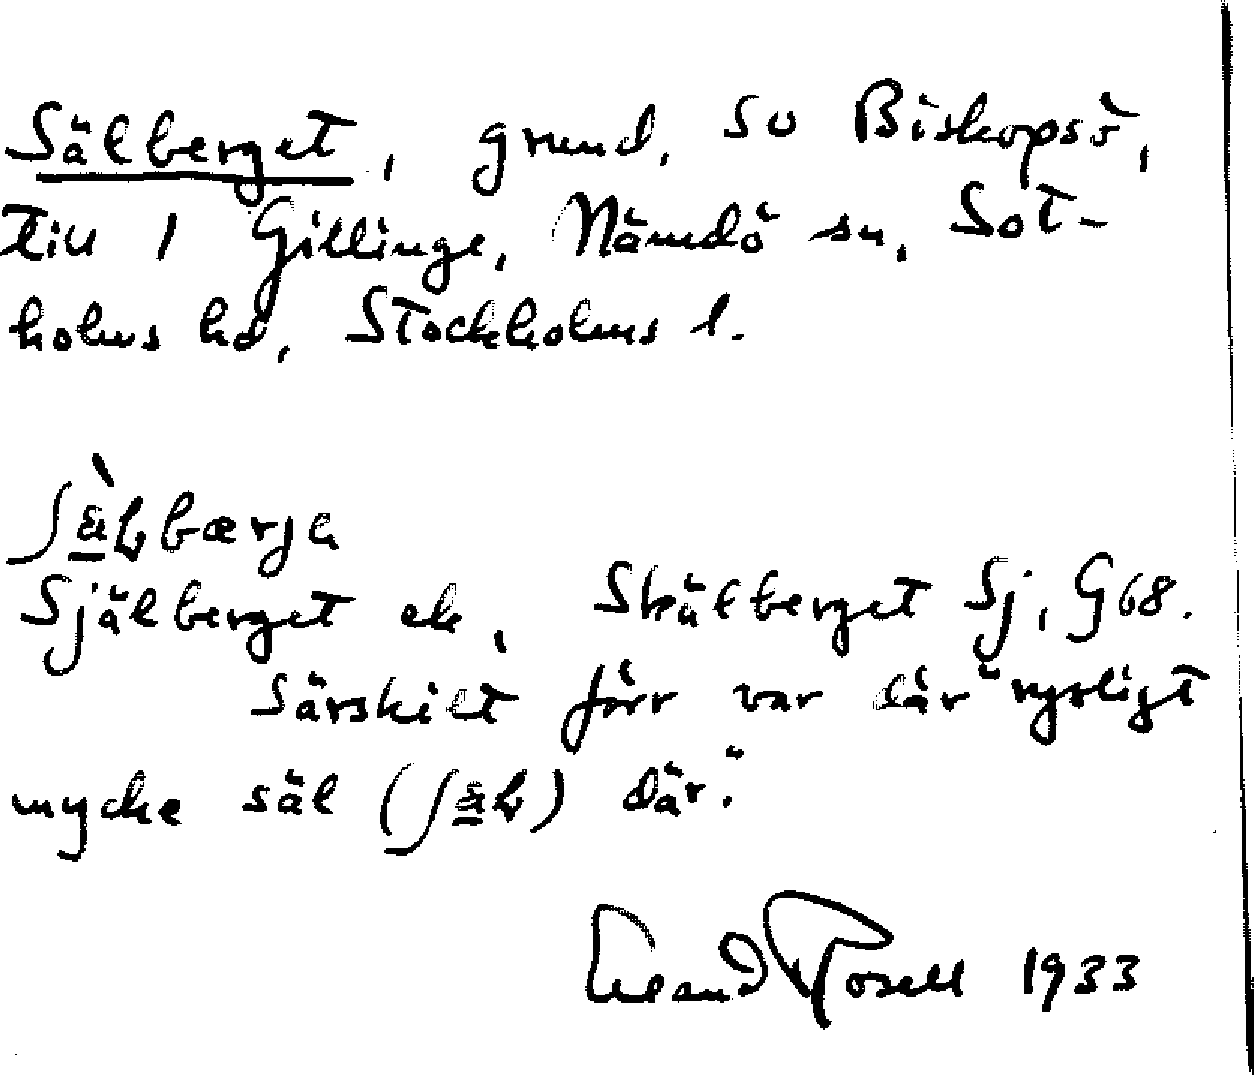 Sälberget, grund, SO Biskopsö,
till 1 Gillinge, Nämdö sn, Sot-
holms hd, Stockholms l.
ʃä̀ɫbærja
Själberget ek, Skälberget Sj, G68.
Särskilt förr var där "rysligt
mycke säl (ʃäɫ) där."
Erland Rosell 1933